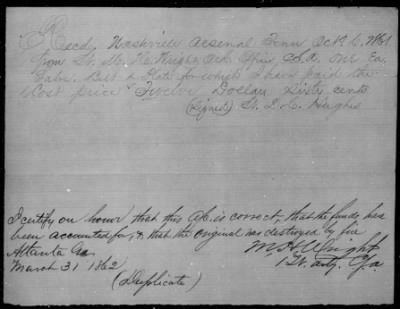 Recd, Nashville Arsenal Tenn Oct 6, 1861
from Lt. M. H. Wright Ord. Offr. C.S.A. one Ea.
Sabre Belt & Plate for which I have paid the
Cost price Twelve Dollars Sixty cents
(Signed) Hughes
I certify on honor that this a/c. is correct, that the funds has
been accounted for, & that the original was destroyed by fire
Atlanta Ga
March 31 1862
M. H. Wright
1 Lt.
(Duplicate)